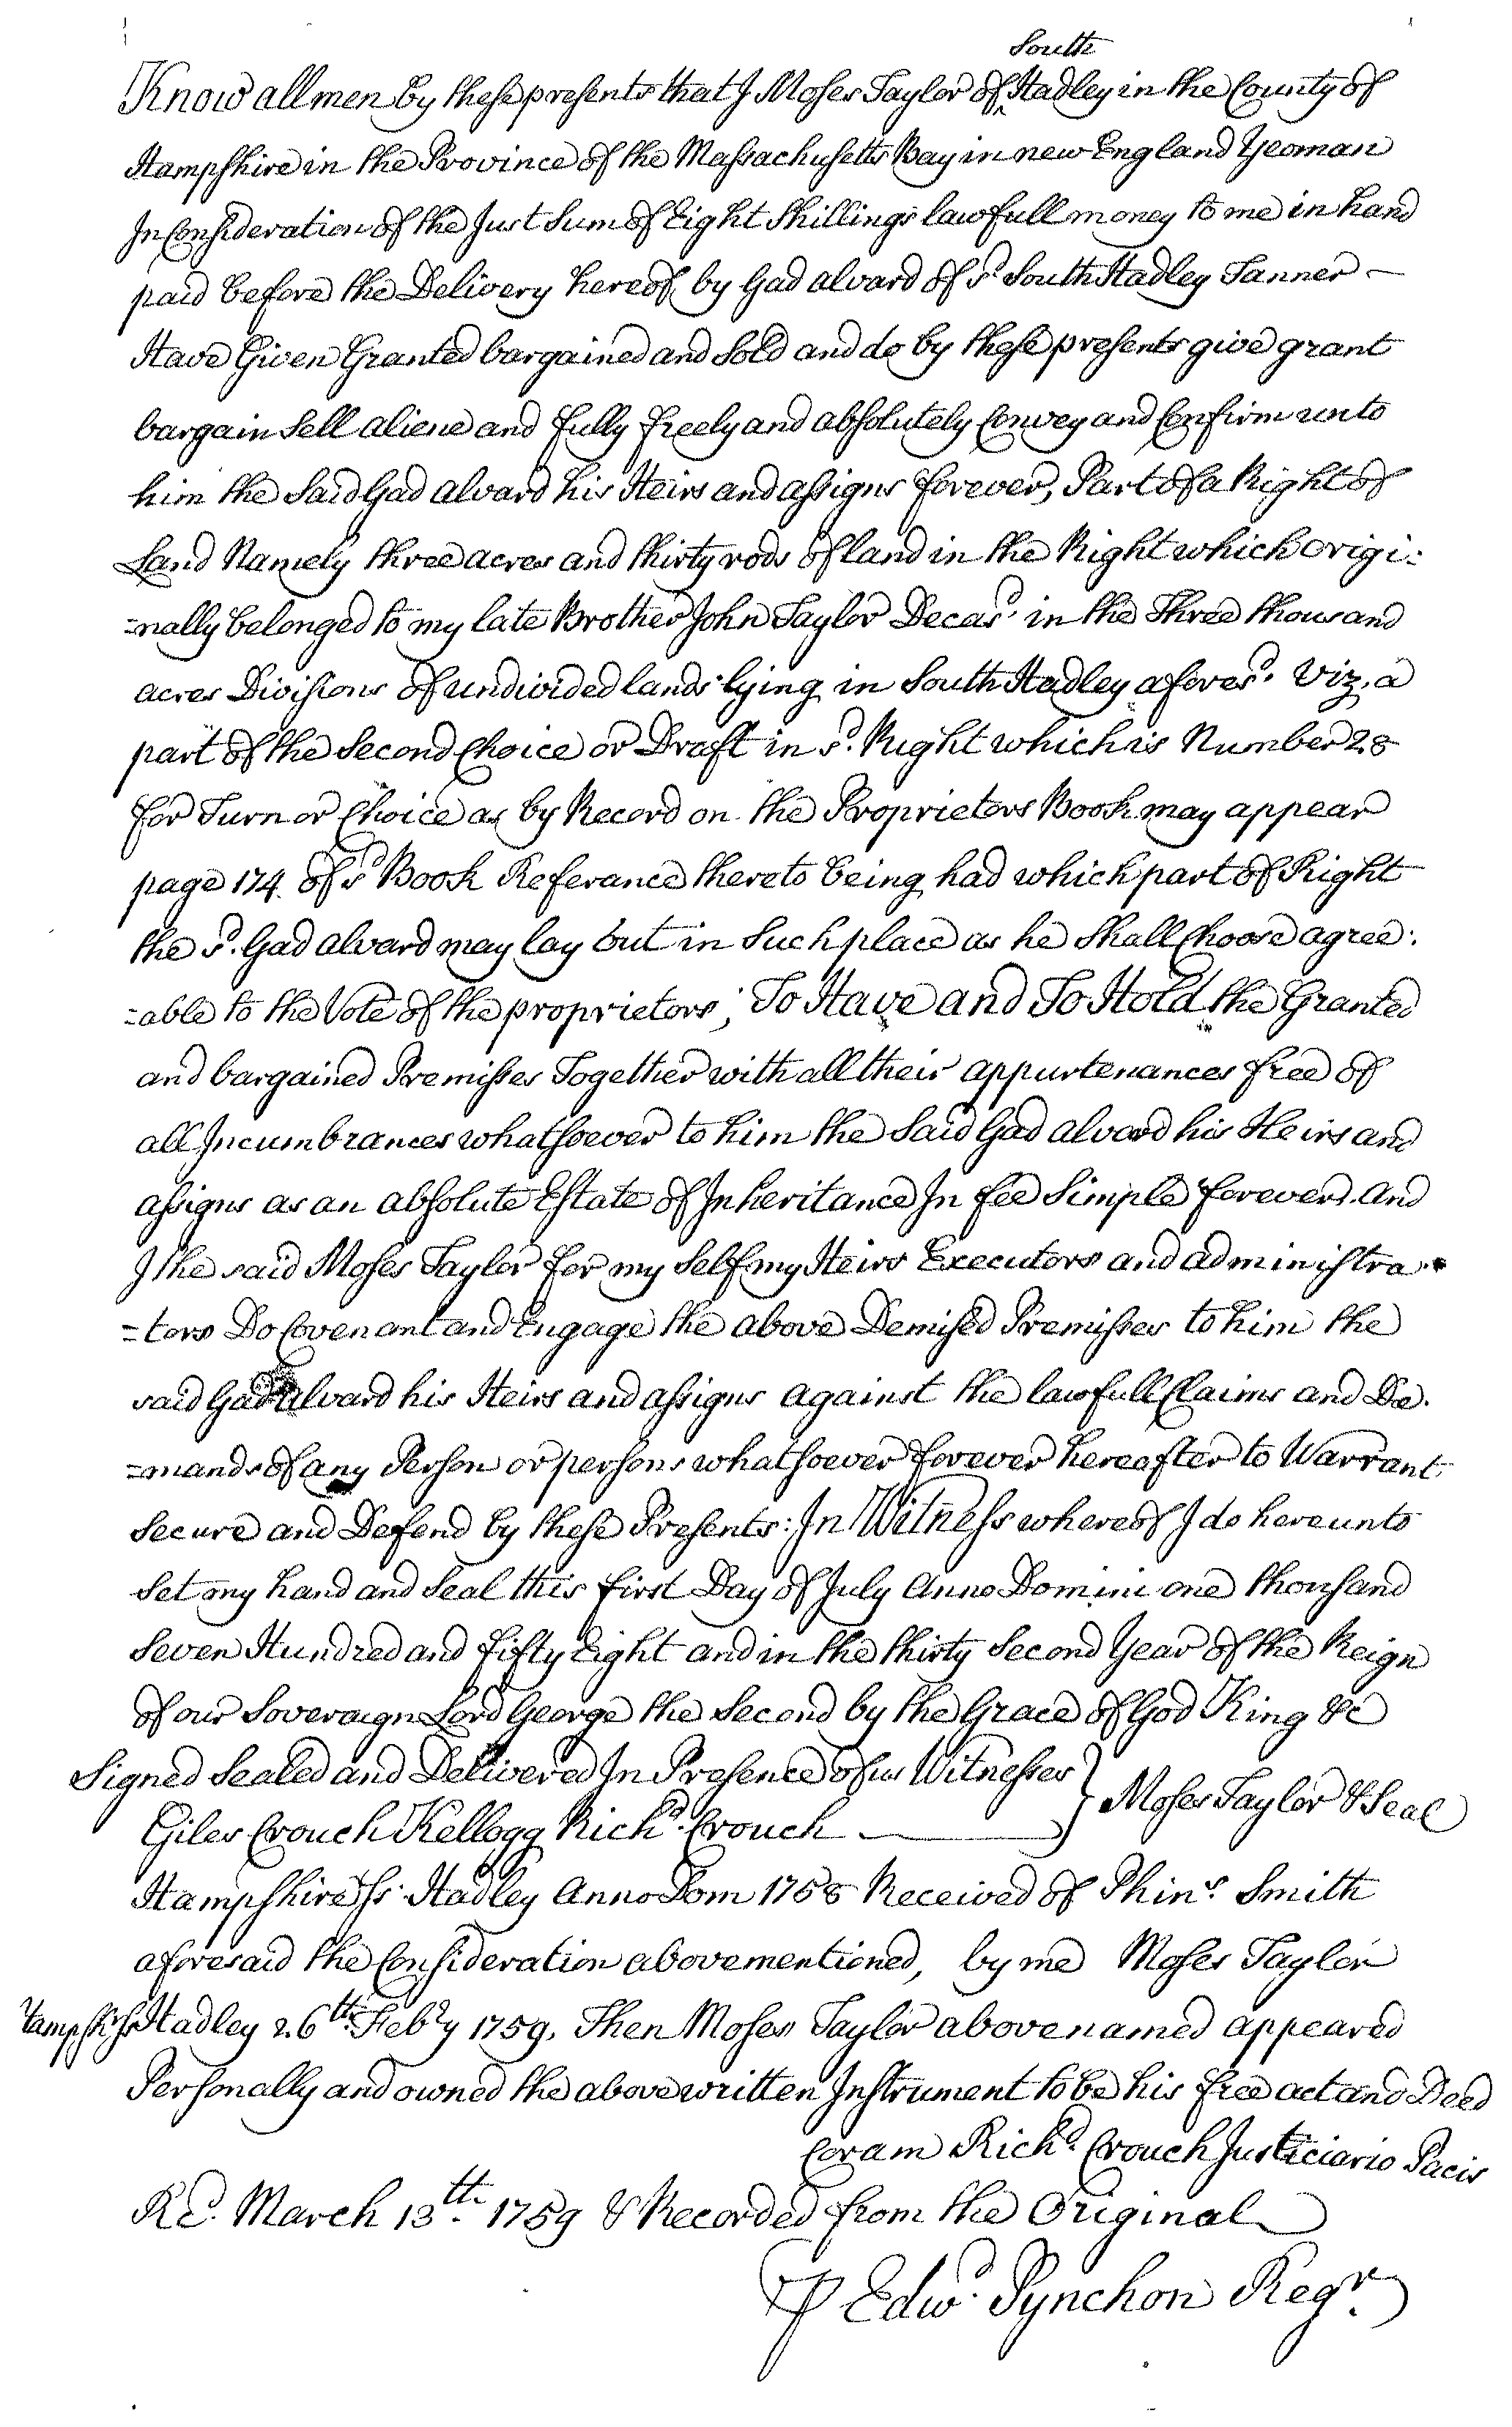 South
Know all men by these presents that I Moses Taylor of ‸ Hadley in the County of
Hampshire in the Province of the Massachusetts Bay in new England Yeoman
In Consideration of the Just Sum of Eight Shillings lawfull money to me in hand
paid before the Delivery hereof by Gad alvard of sd. South Hadley Tanner —
Have Given Granted bargained and Sold and do by these presents give grant
bargain Sell aliene and fully freely and absolutely Convey and Confirm unto
him the Said Gad alvard his Heirs and assigns forever, Part of a Right of
Land Namely three acres and thirty rods of land in the Right which origi:
=nally belonged to my late Brother John Taylor Decasd. in the Three thousand
acres Divisions of undivided lands lying in South Hadley aforesd. Viz. a
part of the Second Choice or Draft in sd. Right which is Number 28
for Turn or Choice as by Record on the Proprietors Book may appear
page 174 of sd Book Referance thereto being had which part of Right
the sd. Gad alvard may lay out in Such place as he Shall Choose agree:
=able to the Vote of the proprietors; To Have and To Hold the Granted
and bargained Premisses Together with all their appurtenances free of
all Incumbrances whatsoever to him the Said Gad alvard his Heirs and
assigns as an absolute Estate of Inheritance In fee Simple forever. And
I the said Moses Taylor for my Self my Heirs Executors and administra:
=tors Do Covenant and Engage the above Demised Premisses to him the
said Gad alvard his Heirs and assigns against the lawfull Claims and De:
=mands of any Person or persons whatsoever forever hereafter to Warrant
Secure and Defend by these Presents: In Witness whereof I do hereunto
Set my hand and Seal this first Day of July Anno Domini one thousand
Seven Hundred and fifty Eight and in the thirty Second Year of the Reign
of our Soveraign Lord George the Second by the Grace of God King &c
Signed Sealed and Delivered In Presence of us Witnesses } Moses Taylor & Seal
Giles Crouch Kellogg Richd. Crouch —
Hampshire Ss. Hadley Anno Dom 1758 Received of Phins. Smith
aforesaid the Consideration abovementioned, by me Moses Taylor
Hampshr. Ss. Hadley 26th. Febry 1759. Then Moses Taylor abovenamed appeared
Personally and owned the above written Instrument to be his free act and Deed
Coram Richd. Crouch Justiciario Pacis
Rd. March 13th. 1759 & Recorded from the Original
⅌ Edwd. Pynchon Regr.